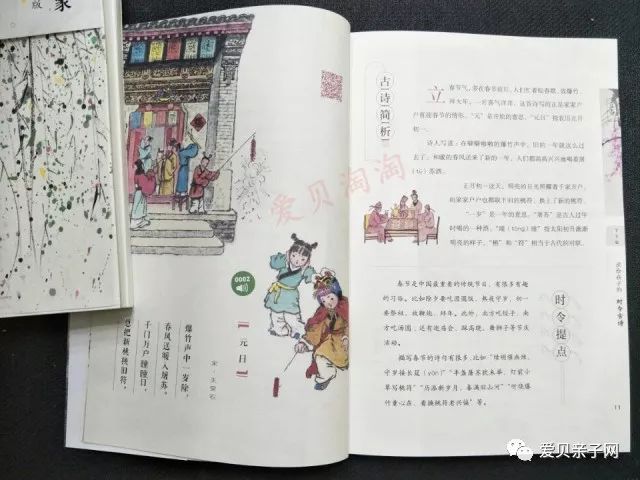 家
版
爱贝淘淘
0002
元日
宋·王安石
爆竹声中一岁除，
春风送暖入屠苏。
千门万户曈曈日，
总把新桃换旧符。
古诗简析
立春节气，常在春节前后。人们忙着贴春联、放爆竹、
拜大年，一片喜气洋洋。这首诗写的正是家家户
户喜迎春节的情形。“元”是开始的意思，“元日”指农历正月
初一。
诗人写道：在噼噼啪啪的爆竹声中，旧的一年就这么过
去了；和暖的春风送来了新的一年，人们都高高兴兴地喝着屠
（tú）苏酒。
正月初一这天，明亮的日光照耀着千家万户，
而家家户户也都取下旧的桃符，换上了新的桃符。
“一岁”是一年的意思。“屠苏”是古人过年
时喝的一种酒。“曈（tóng）曈”指太阳初升渐渐
明亮的样子。“桃”和“符”相当于古代的对联。
时令提点
春节是中国最重要的传统节日，有很多有趣
的习俗。比如除夕要吃团圆饭、熬夜守岁，初一
要祭祖、放鞭炮、拜年。此外，北方吃饺子，南
方吃汤圆；还有逛庙会、踩高跷、舞狮子等节庆
活动。
描写春节的诗句有很多，比如“
守岁接长筵（yán）”“半盏屠苏犹未举，灯前小
草写桃符”“历添新岁月，春满旧山河”“
竹童心在，看换桃符老兴诚”等。
时令古诗
11
爱贝亲子网